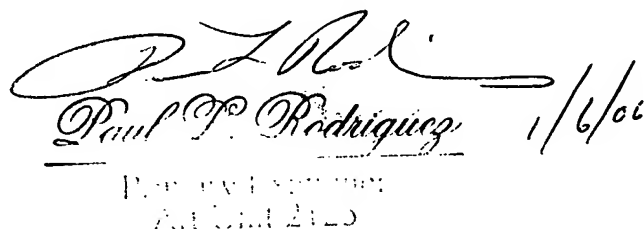 Paul L. Rodriguez 1/6/06
Primary Examiner
Art Unit 2125